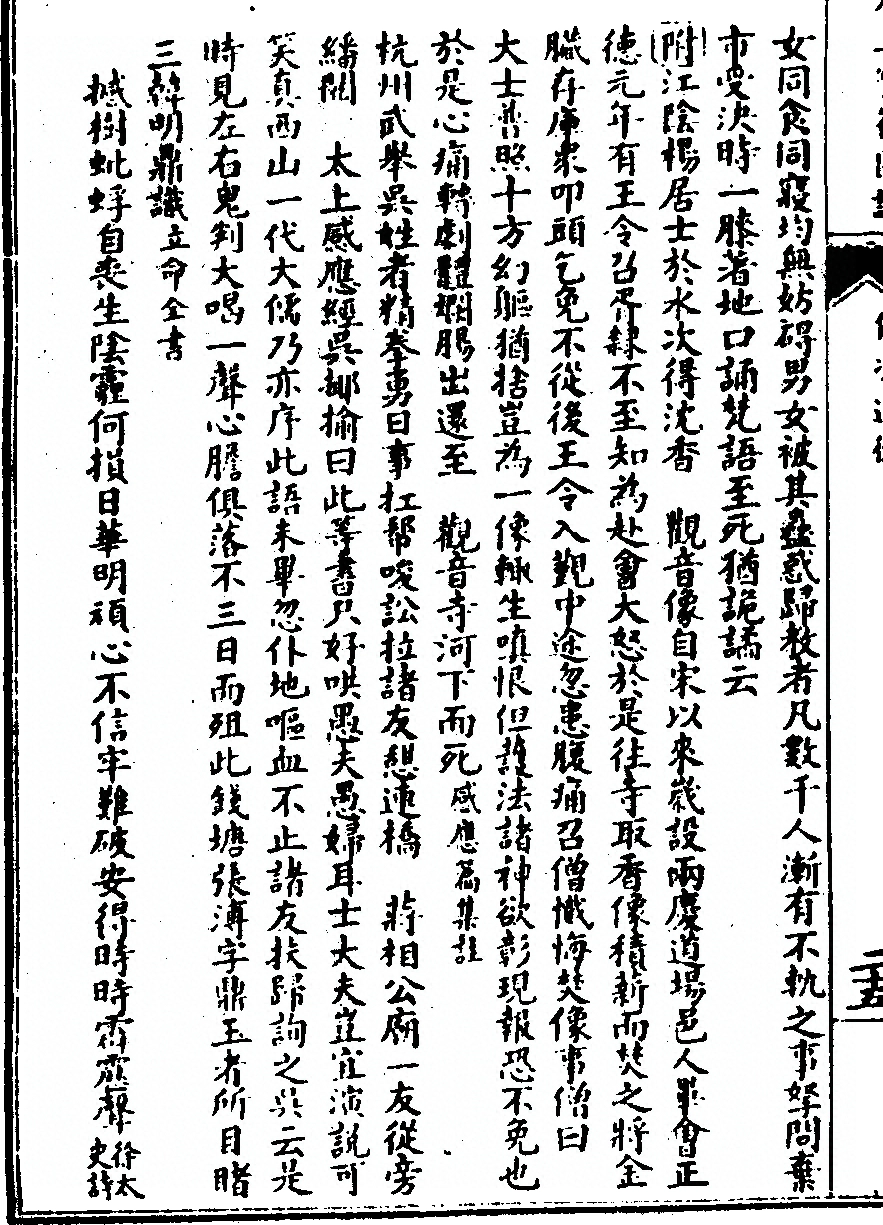 女同食同寢均無妨碍男女被其蠱惑歸教者凡數千人漸有不軌之事拏問棄
市受決時一膝著地口誦梵語至死猶詭譎云
附江陰楊居士於水次得沈香 觀音像自宋以來歲設兩慶道場邑人畢會正
德元年有王令召胥隸不至知為赴會大怒於是往寺取香像積薪而焚之將金
臟存庫衆叩頭乞免不從後王令入覲中途忽患腹痛召僧懺悔焚像事僧曰
大士普照十方幻軀猶捨豈為一像輙生嗔恨但護法諸神欲彰現報恐不免也
於是心痛轉劇體爛腸出還至 觀音寺河下而死感應篇集註
杭州武舉吳姓者精拳勇日事扛幫唆訟拉諸友憩蓮橋 蔣相公廟一友從旁
繙閱 太上感應經吳揶揄曰此等書只好哄愚夫愚婦耳士大夫豈宜演說可
笑真西山一代大儒乃亦序此語未畢忽仆地嘔血不止諸友扶歸詢之吳云是
時見左右鬼判大喝一聲心膽俱落不三日而殂此錢塘張溥字鼎玉者所目睹
三韓明鼎識立命全書
撼樹蚍蜉自喪生陰霾何損日華明頑心不信牢難破安得時時霹靂聲徐太史詩
二五